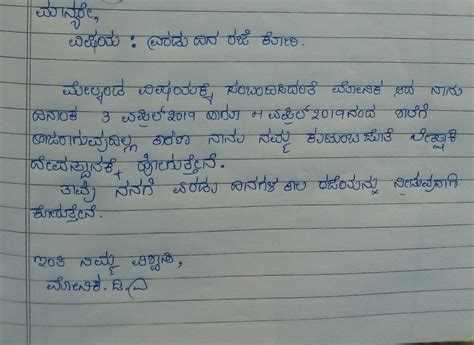 ಮಾನ್ಯರೇ,
ವಿಷಯ : ಎರಡು ದಿನ ರಜೆ ಕೋರಿ.
ಮೇಲ್ಕಂಡ ವಿಷಯಕ್ಕೆ ಸಂಬಂದಿಸಿದಂತೆ ಮೋನಿಕ ಆದ ನಾನು
ದಿನಾಂಕ 3 ಏಪ್ರಿಲ್ 2019 ಹಾಗೂ 4 ಏಪ್ರಿಲ್ 2019ನಂದ ಶಾಲೆಗೆ
ಹಾಜರಾಗುವುದಿಲ್ಲ ಕಾರಣ ನಾನು ನಮ್ಮ ಕುಟುಂಬ ಜೊತೆ
ದೇವಸ್ದಾನಕ್ಕೆ ಹೋಗುತ್ತೇನೆ.
ತಾವು ನನಗೆ ಎರಡು ದಿನಗಳ ಕಾಲ ರಜೆಯನ್ನು ನೀಡುವುದಾಗಿ
ಕೋರುತ್ತೇನೆ.
ಇಂತಿ ನಿಮ್ಮ ವಿಶ್ವಾಸಿ,
ಮೋನಿಕ. ಡಿ.